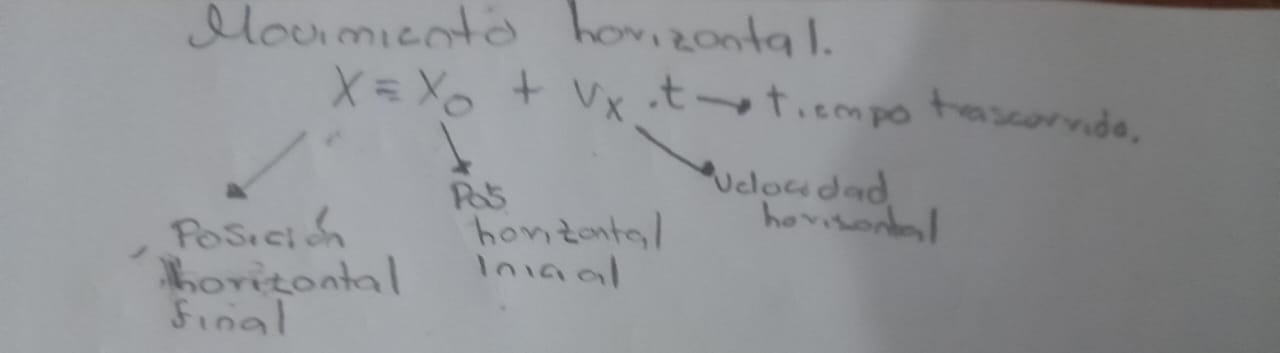 Movimiento horizontal.
X = X₀ + Vx . t → tiempo trascorrido.
Posición horizontal final
Pos horizontal inicial
Velocidad horizontal